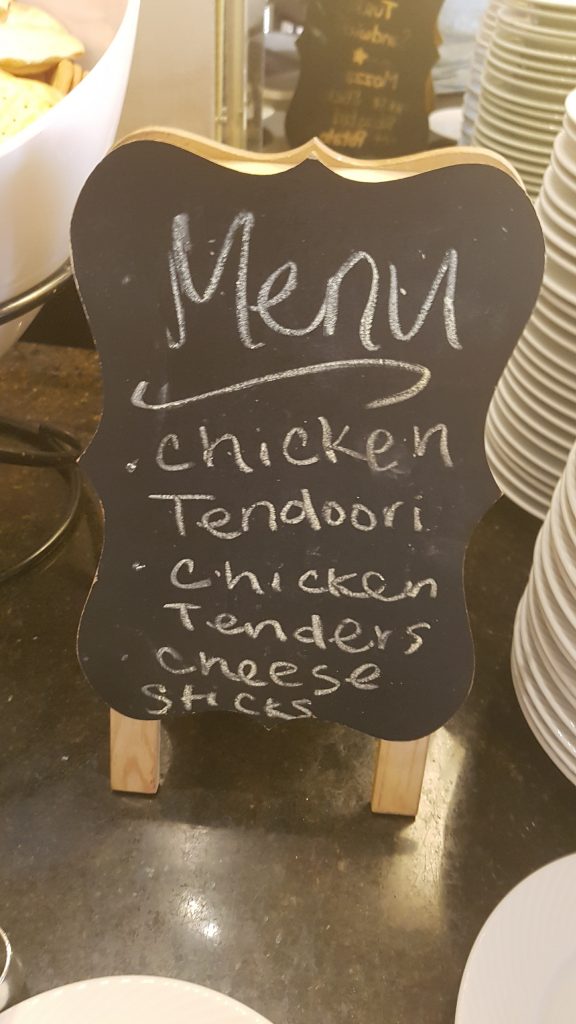 Menu
. Chicken
Tendoori
. Chicken
Tenders
. Cheese
Sticks